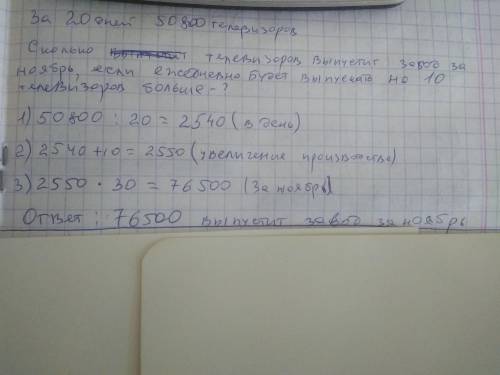 За 20 дней 50800 телевизоров
Сколько телевизоров выпустит завод за
ноябрь, если ежедневно будет выпускать на 10
телевизоров больше - ?
1) 50800 : 20 = 2540 (в день)
2) 2540 + 10 = 2550 (увеличение производства)
3) 2550 · 30 = 76500 (За ноябрь)
Ответ : 76500 выпустит завод за ноябрь